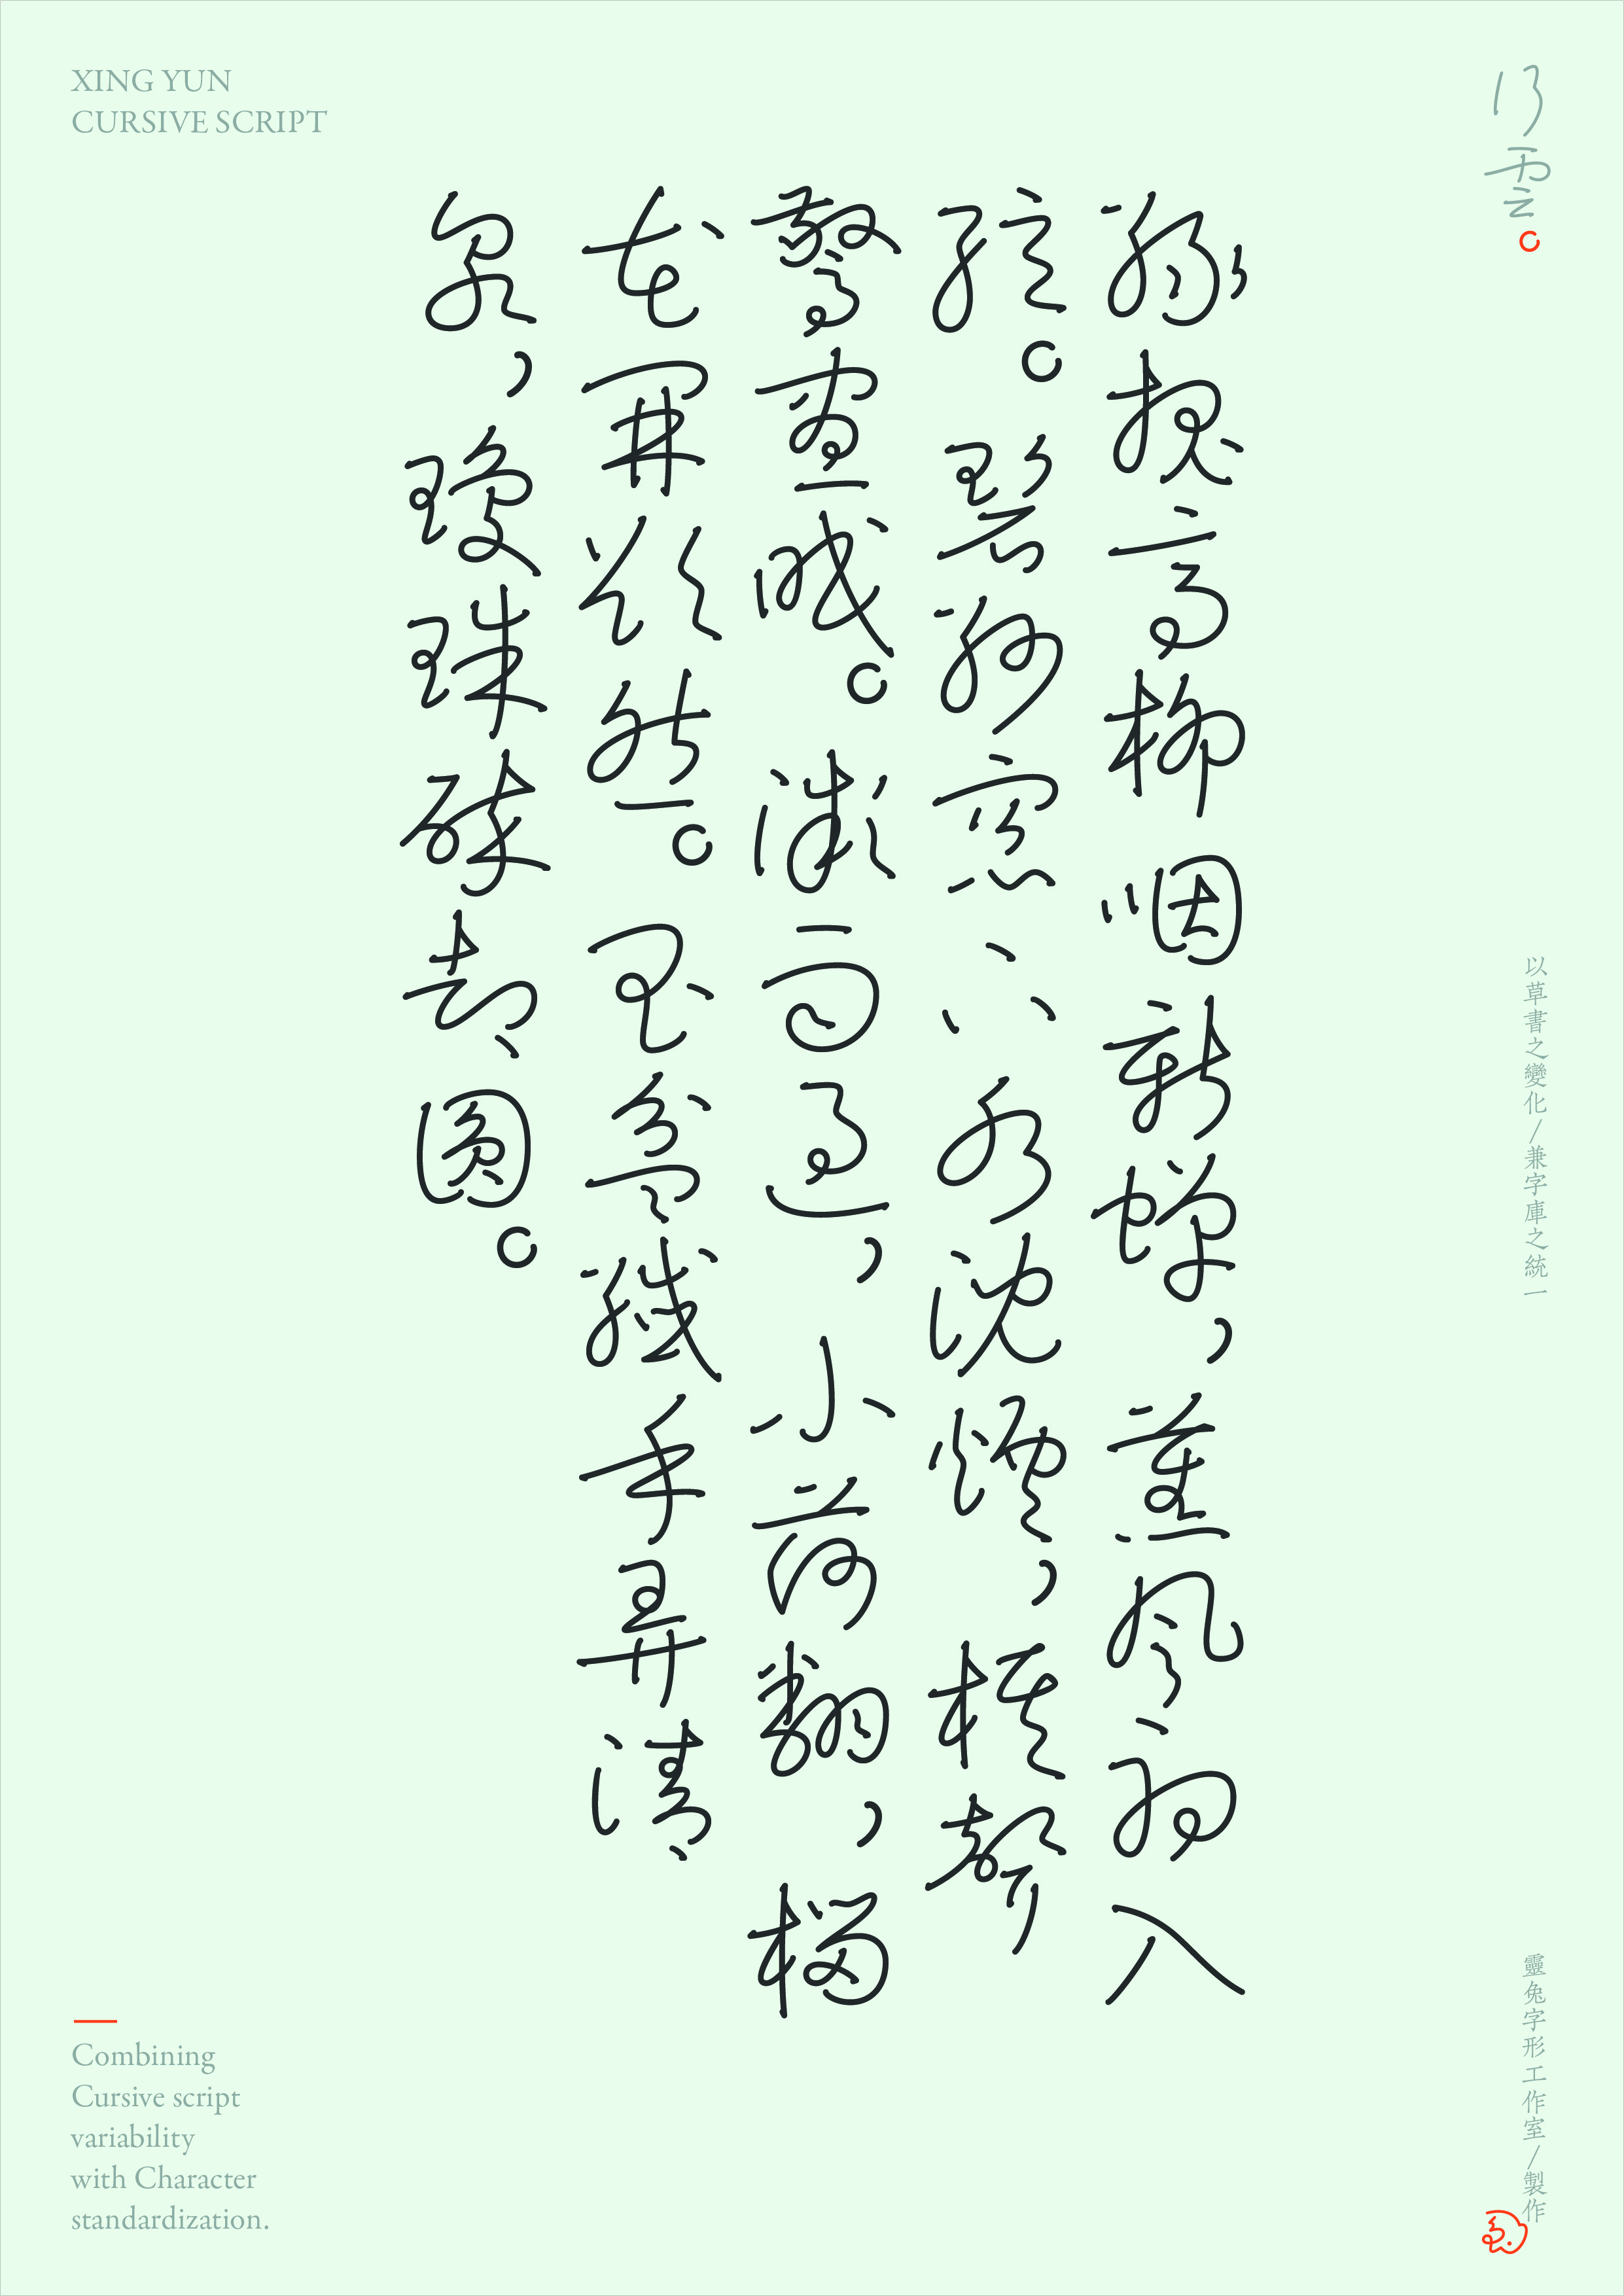 XING YUN
CURSIVE SCRIPT
行雲。
綠槐高柳咽新蟬，薰風初入
絃。碧紗窗下水沈煙，棋聲
驚晝眠。微雨過，小荷翻，榴
花開欲然。玉盆纖手弄清
泉，瓊珠碎却圓。
以草書之變化/兼字庫之統一
靈兔字形工作室/製作
Combining
Cursive script
variability
with Character
standardization.